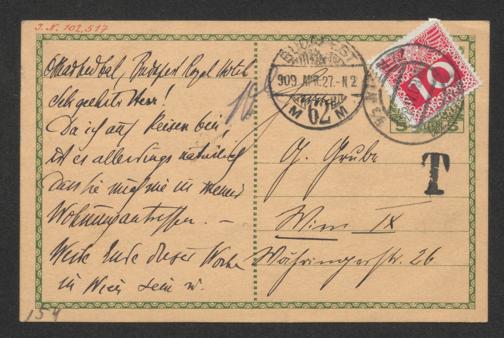 J. N. 102.517
Budapest Royal Hotel
Sehr geehrter Herr!
Da ich auf Reisen bin,
ist es allerdings natürlich
dass Sie mich nie in meiner
Wohnung antreffen. —
Werde Ende dieser Woche
in Wien sein u.
154
BUDAPEST
909. APR. 27. - N 2
M 62 M
10
T
G. Grube
Wien IX
Währingerstr. 26